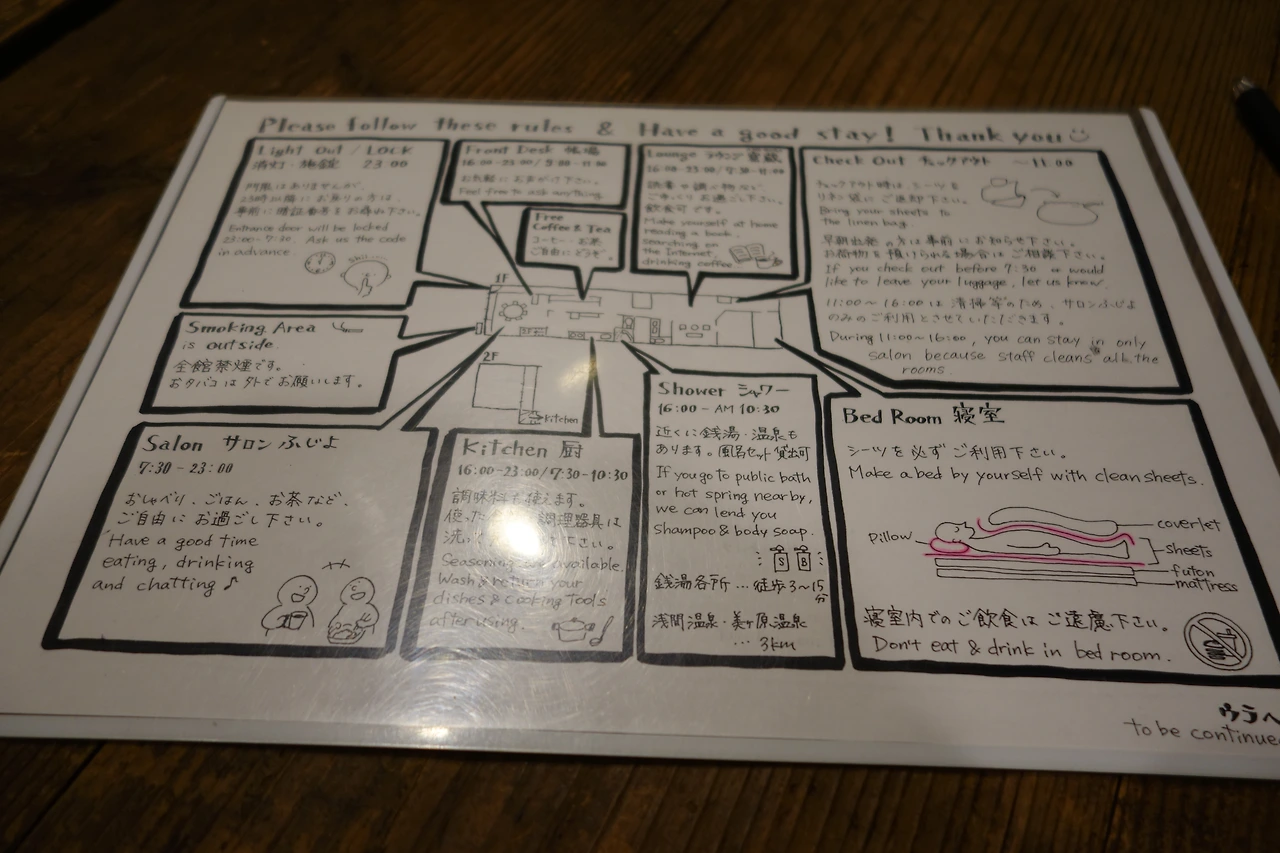 Please follow these rules & Have a good stay! Thank you
Light Out / LOCK
消灯・施錠 23:00
門限はありませんが、
23時以降にお戻りの方は、
事前に暗証番号をお尋ね下さい。
Entrance door will be locked
23:00-7:30. Ask us the code
in advance.
Front Desk 帳場
16:00-23:00/7:30-11:00
お気軽にお声がけ下さい。
Feel free to ask anything.
Free
Coffee & Tea
コーヒー・お茶
ご自由にどうぞ。
Lounge ラウンジ
16:00-23:00/7:30-11:00
読書や調べ物など、
ごゆっくりお過ごし下さい。
飲食可です。
Make yourself at home
reading a book,
searching on
the Internet,
drinking coffee
Check Out チェックアウト ~11:00
チェックアウト時は、シーツを
リネン袋にご返却下さい。
Bring your sheets to
the linen bag.
早期出発の方は事前にお知らせ下さい。
お荷物を預けられる場合はご相談下さい。
If you check out before 7:30 or would
like to leave your luggage, let us know.
11:00~16:00は清掃等のため、サロンふじよ
のみのご利用とさせていただきます。
During 11:00~16:00, you can stay in only
salon because staff cleans all the
rooms.
Smoking Area
is outside.
全館禁煙です。
おタバコは外でお願いします。
1F
2F
Kitchen
Salon サロンふじよ
7:30-23:00
おしゃべり、ごはん、お茶など、
ご自由にお過ごし下さい。
Have a good time
eating, drinking
and chatting♪
Kitchen 厨
16:00-23:00/7:30-10:30
調味料も使えます。
調理器具は
洗って
下さい。
Seasoning are available.
Wash & return your
dishes & cooking tools
after using.
Shower シャワー
16:00-AM 10:30
近くに銭湯・温泉も
あります。風呂セット貸出可
If you go to public bath
or hot spring nearby,
we can lend you
Shampoo & body soap.
S B
銭湯各所…徒歩3~15分
浅間温泉・美ヶ原温泉
…3km
Bed Room 寝室
シーツを必ずご利用下さい。
Make a bed by yourself with clean sheets.
Pillow
coverlet
sheets
futon
mattress
寝室内でのご飲食はご遠慮下さい。
Don't eat & drink in bed room.
ウラへ
to be continue